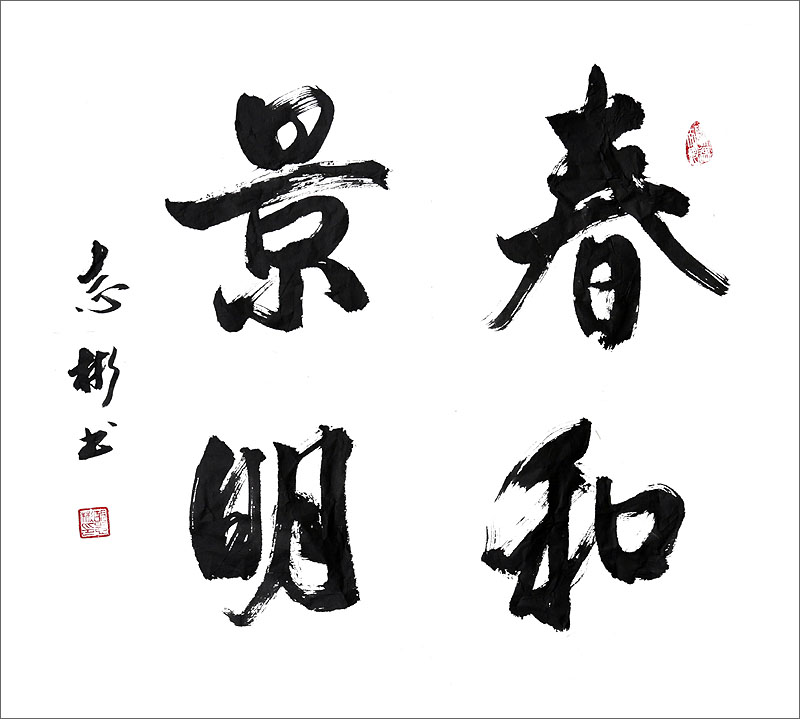 春和
景明
志彬书